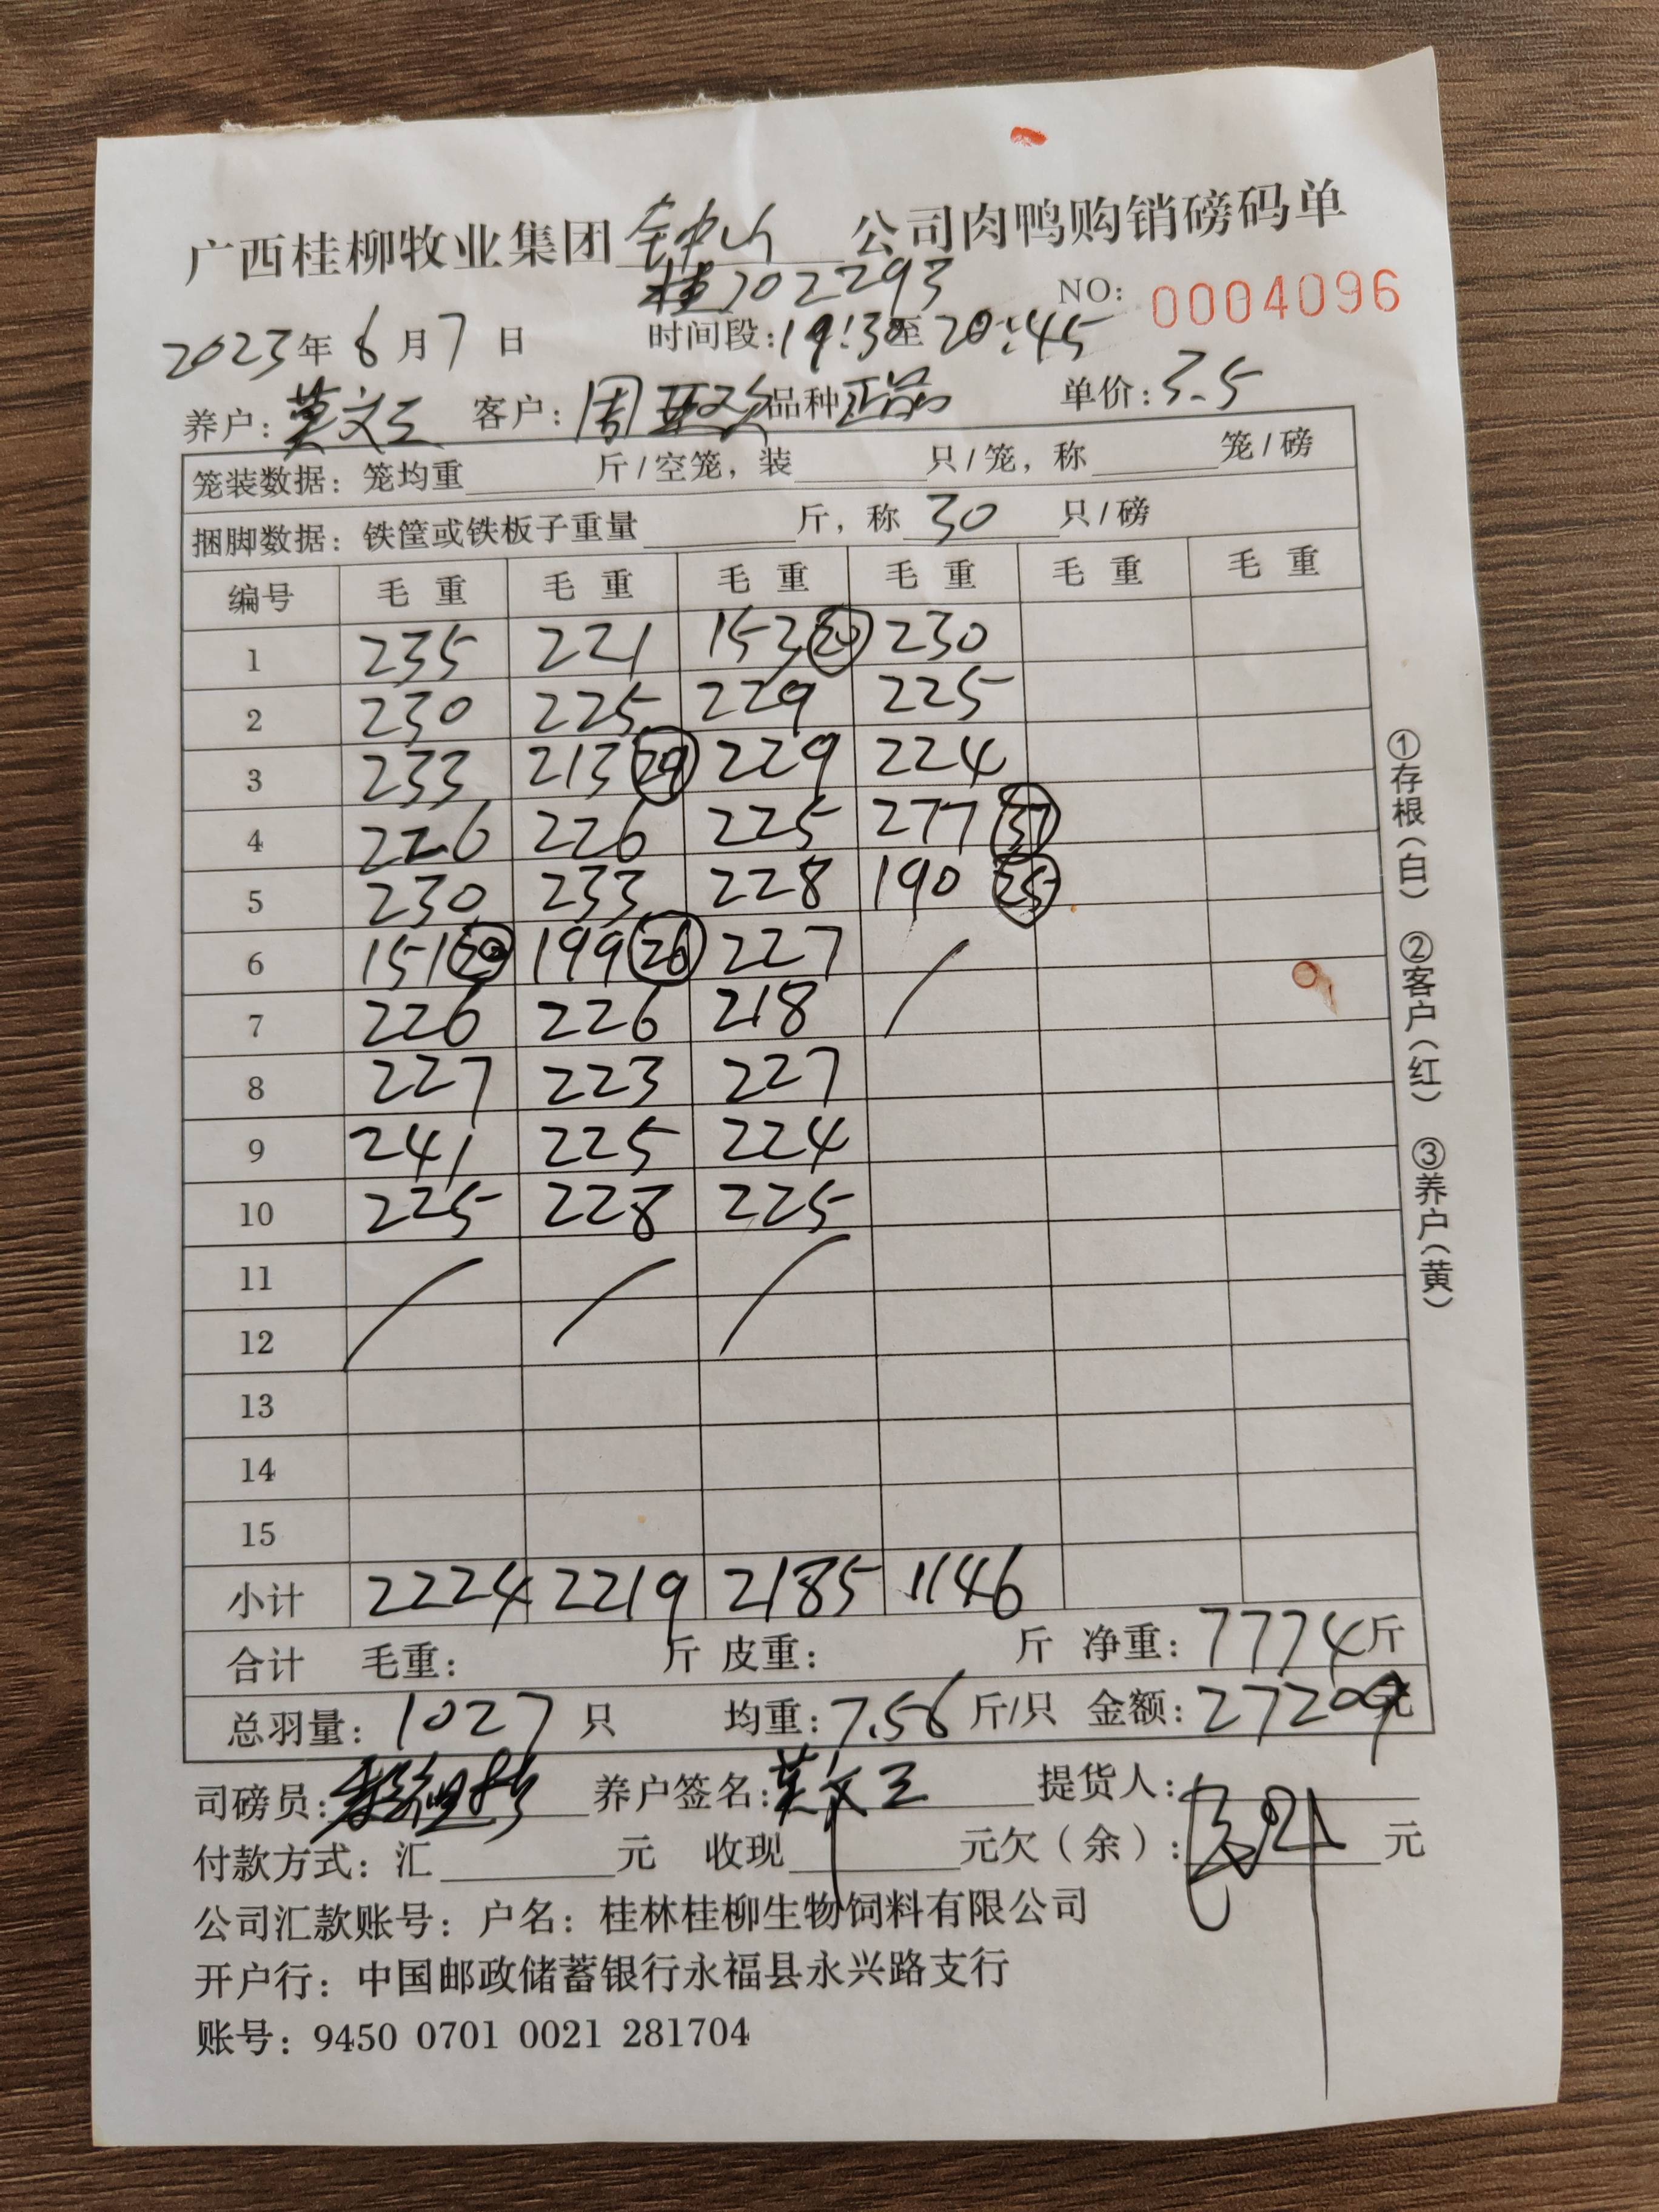 广西桂柳牧业集团钟山公司肉鸭购销磅码单
桂J02293
NO: 0004096
2023年6月7日 时间段:19:30至20:45
养户:莫文三 客户:周 品种正品 单价:3.5
笼装数据:笼均重 斤/空笼,装 只/笼,称 笼/磅
捆脚数据:铁筐或铁板子重量 斤,称 30 只/磅
编号 毛重 毛重 毛重 毛重 毛重 毛重
1 235 221 153 20 230
2 230 225 229 225
3 233 213 29 229 224
4 226 226 225 277 37
5 230 233 228 190 25
6 151 20 199 26 227
7 226 226 218
8 227 223 227
9 241 225 224
10 225 228 225
11
12
13
14
15
小计 2224 2219 2185 1146
合计 毛重: 斤 皮重: 斤 净重:7774斤
总羽量:1027只 均重:7.56斤/只 金额:27209元
司磅员: 养户签名:莫文三 提货人:
付款方式:汇 元 收现 元欠(余): 元
公司汇款账号:户名:桂林桂柳生物饲料有限公司
开户行:中国邮政储蓄银行永福县永兴路支行
账号:9450 0701 0021 281704
①存根(白) ②客户(红) ③养户(黄)